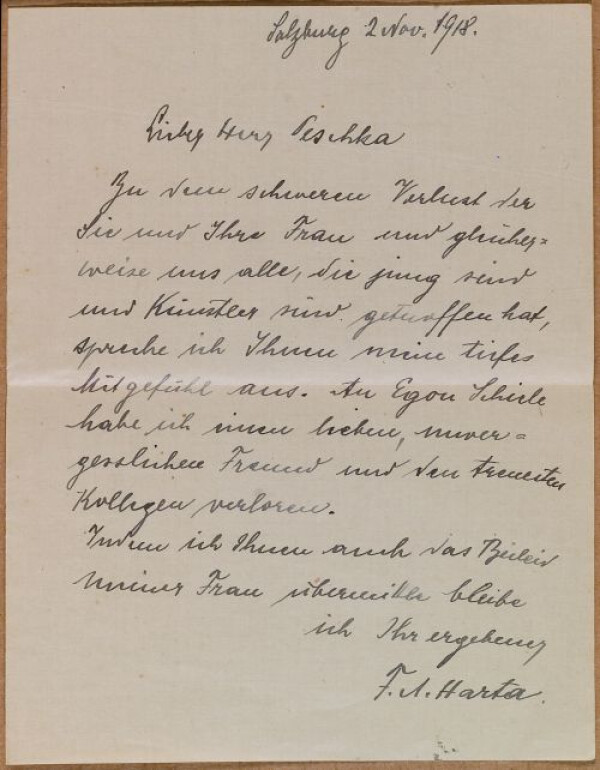 Salzburg 2 Nov. 1918.
Lieber Herr Peschka
Zu dem schweren Verlust der
Sie und Ihre Frau und gleicher=
weise uns alle, die jung sind
und Künstler sind getroffen hat,
spreche ich Ihnen mein tiefes
Mitgefühl aus. An Egon Schiele
habe ich einen lieben, unver=
gesslichen Freund und den treuesten
Kollegen verloren.
Indem ich Ihnen auch das Beileid
meiner Frau übermittle bleibe
ich Ihr ergebener
F. A. Harta.